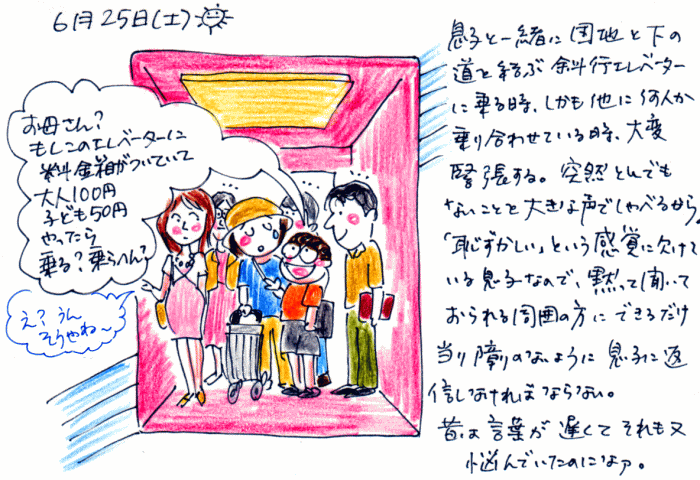 6月25日(土)
お母さん?
もしこのエレベーターに
料金箱がついていて
大人100円
子ども50円
やったら
乗る?乗らへん?
え?うん
そうやね〜
息子と一緒に団地と下の
道を結ぶ斜行エレベーター
に乗る時、しかも他に何人か
乗り合わせている時、大変
緊張する。突然とんでも
ないことを大きな声でしゃべるから。
「恥ずかしい」という感覚に欠けて
いる息子なので、黙って聞いて
おられる周囲の方にできるだけ
当り障りのないように息子に返
信しなければならない。
昔は言葉が遅くてそれも又
悩んでいたのになァ。